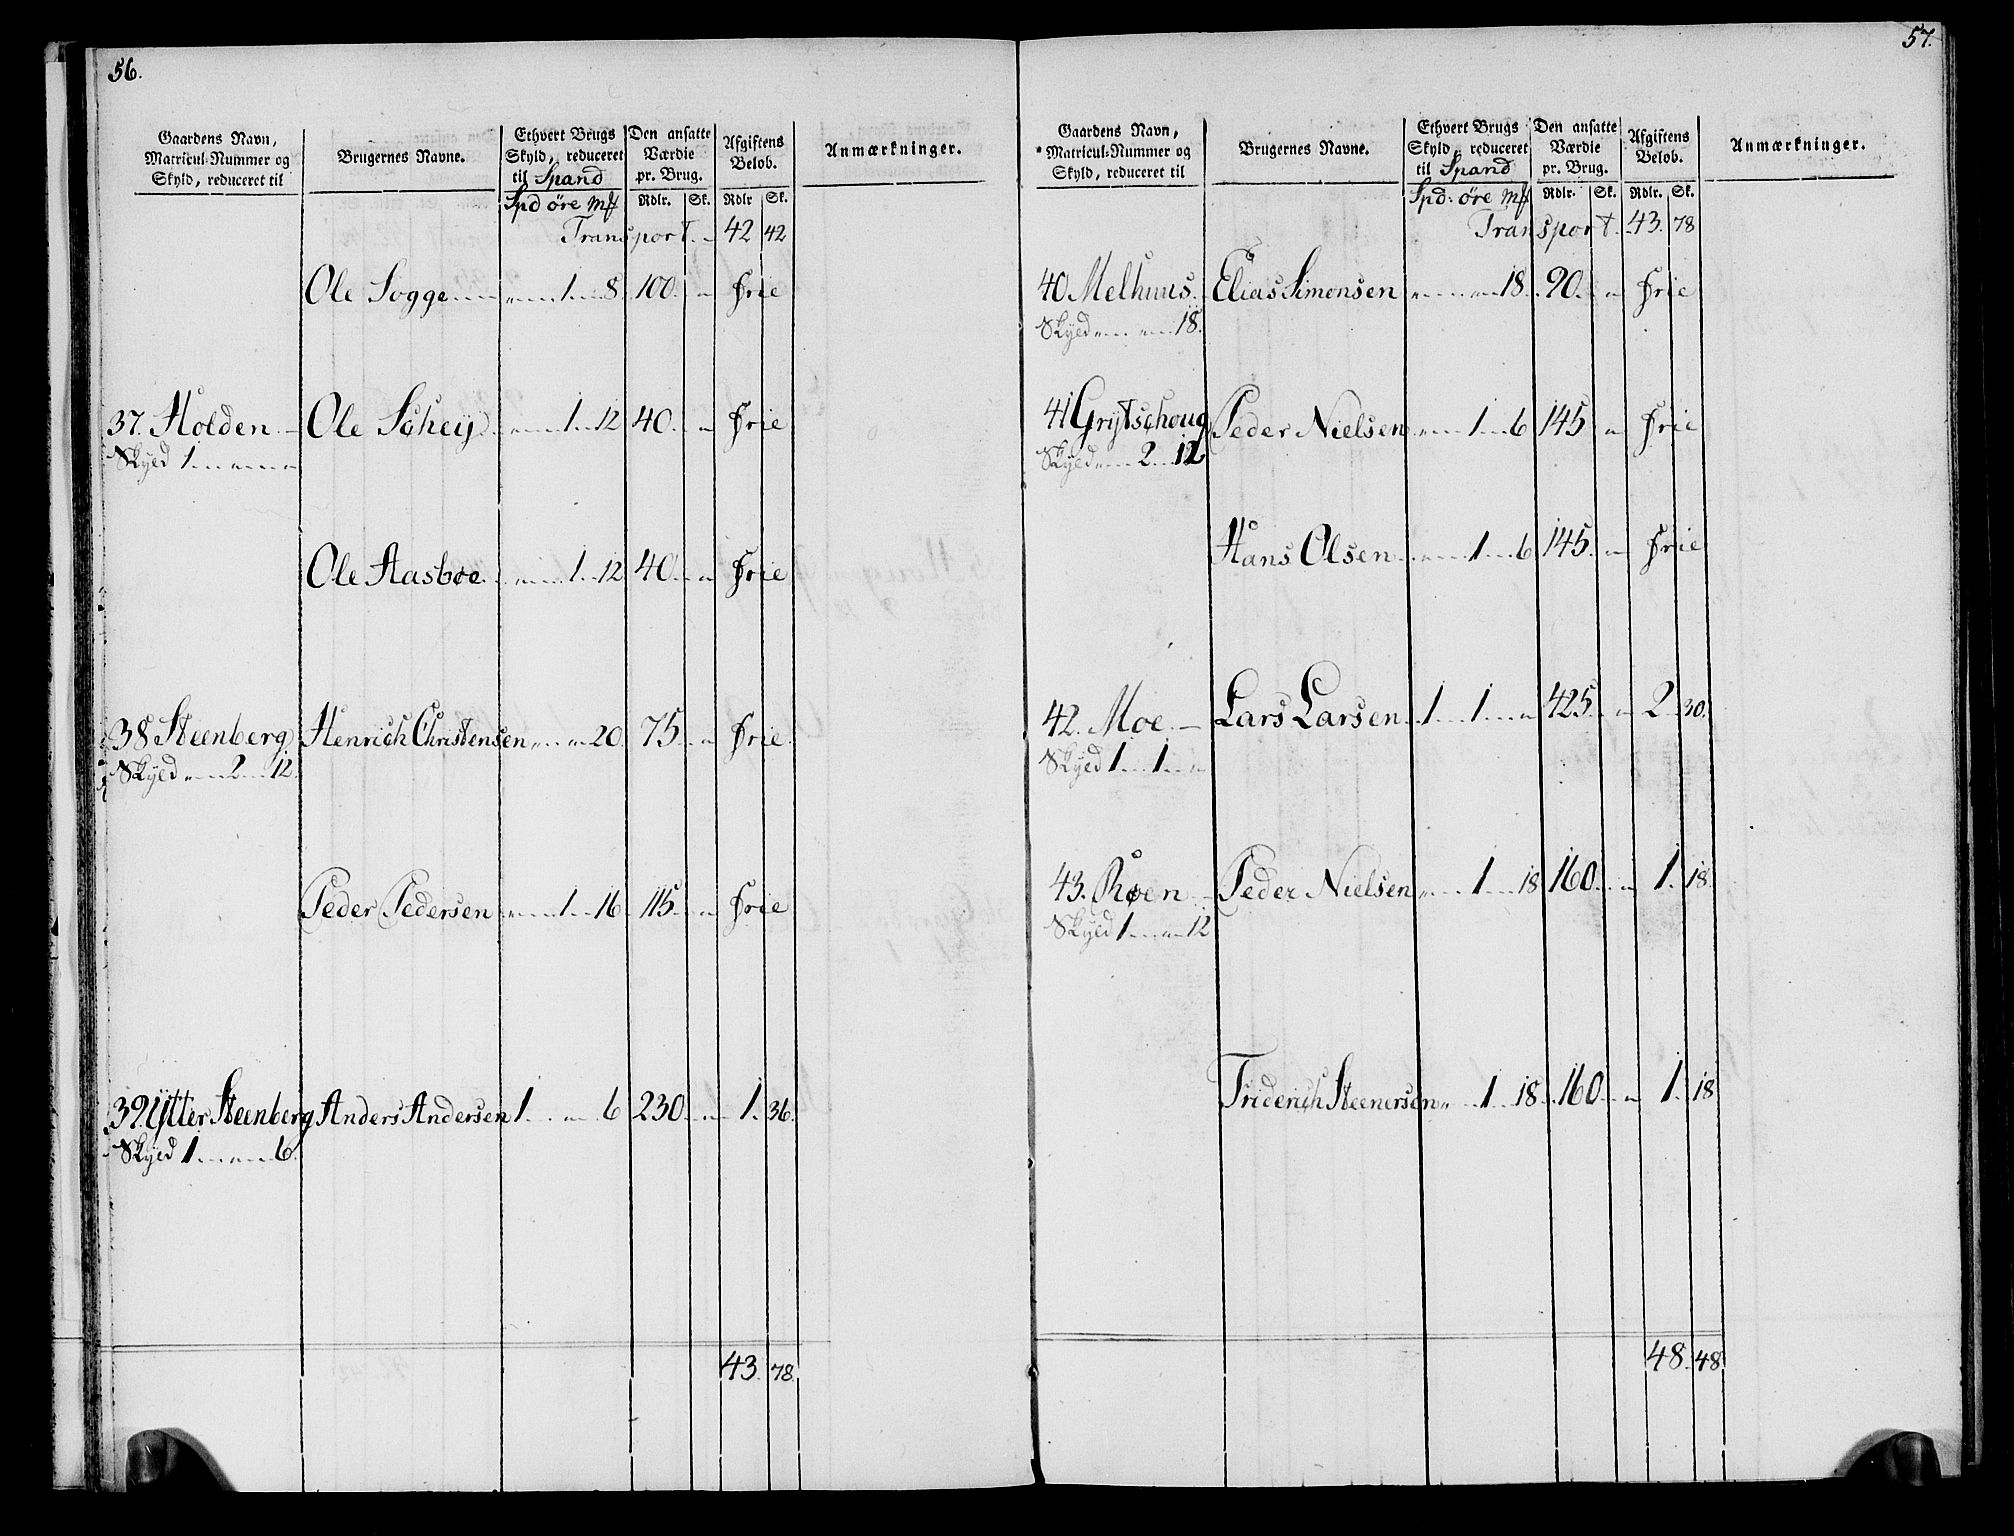 56.
Gaardens Navn, Matricul-Nummer og Skyld, reduceret til
Brugernes Navne.
Ethvert Brugs Skyld, reduceret til Spand
Den ansatte Værdie pr. Brug.
Afgiftens Beløb.
Anmærkninger.
Spd øre mf Rdlr. Sk. Rdlr Sk.
Transport. 42 42
Ole Sogge 1 8. 100. Frie
37. Holden Ole Schey 1 12 40. Frie
Skyld 1
Ole Aasbøe 1 12 40. Frie
38 Steenberg Henrich Christensen 20. 75. Frie
Skyld 2 12.
Peder Pedersen 1 16 115. Frie
39. Ytter Steenberg Anders Andersen 1 6 230 1. 36.
Skyld 1 6.
43. 78.
57.
Gaardens Navn, Matricul-Nummer og Skyld, reduceret til
Brugernes Navne.
Ethvert Brugs Skyld, reduceret til Spand
Den ansatte Værdie pr. Brug.
Afgiftens Beløb.
Anmærkninger.
Spd: øre mf Rdlr. Sk. Rdlr. Sk.
Transport. 43. 78
40 Melhuus. Elias Simonsen 18. 90. Frie
Skyld 18.
41 Grytschoug Peder Nielsen 1 6 145 Frie
Skyld 2 12
Hans Olsen 1 6 145. Frie
42. Moe Lars Larsen 1 1 425. 2 30.
Skyld 1 1
43. Røen Peder Nielsen 1 18 160 1. 18.
Skyld 1 12
Friderich Steenersen 1 18 160 1. 18
48. 48